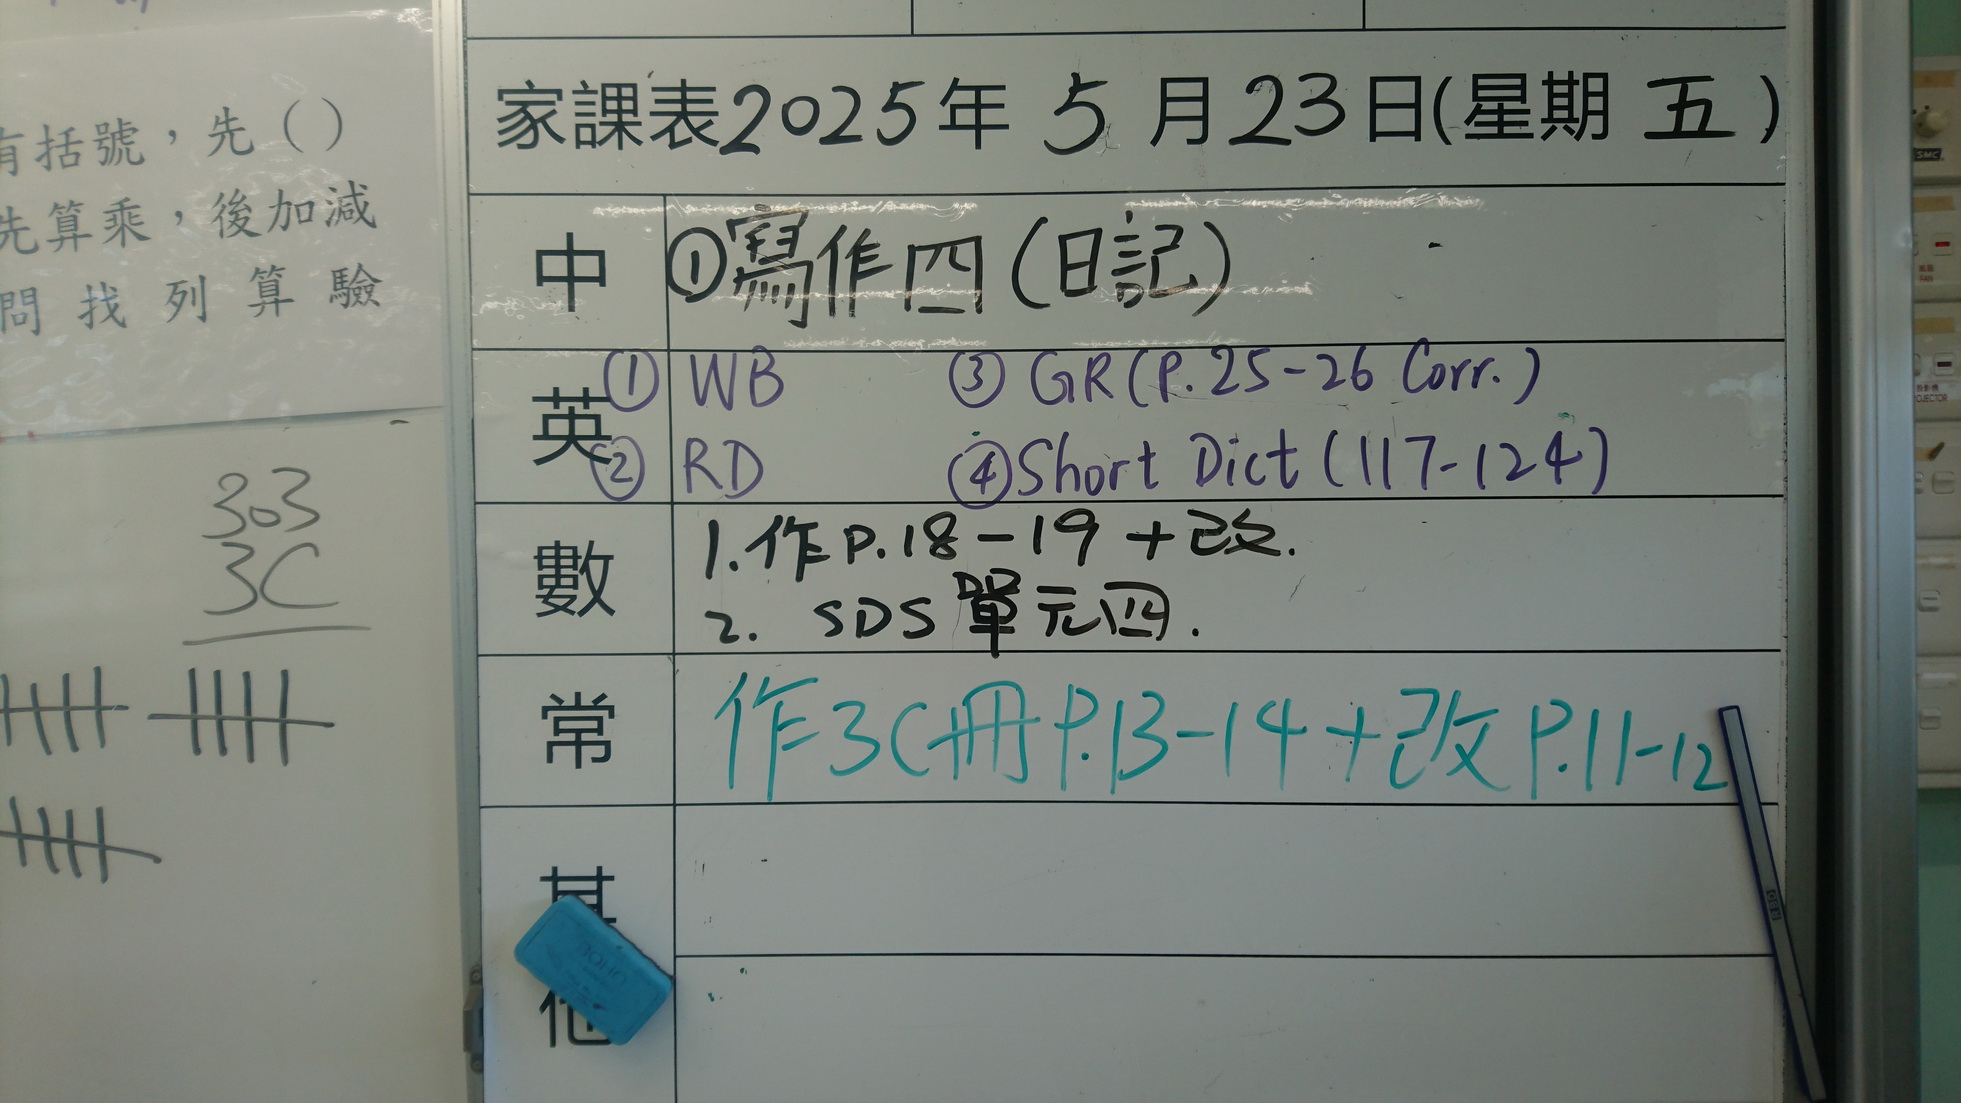 有括號，先（）
先算乘，後加減
問找列算驗
303
3C
家課表2025年5月23日(星期五)
中
①寫作四(日記)
英
① WB ③ GR(P.25-26 Corr.)
② RD ④Short Dict (117-124)
數
1.作P.18-19+改.
2. SDS單元四.
常
作3C冊P.13-14+改P.11-12
其
他
SMC
FAN